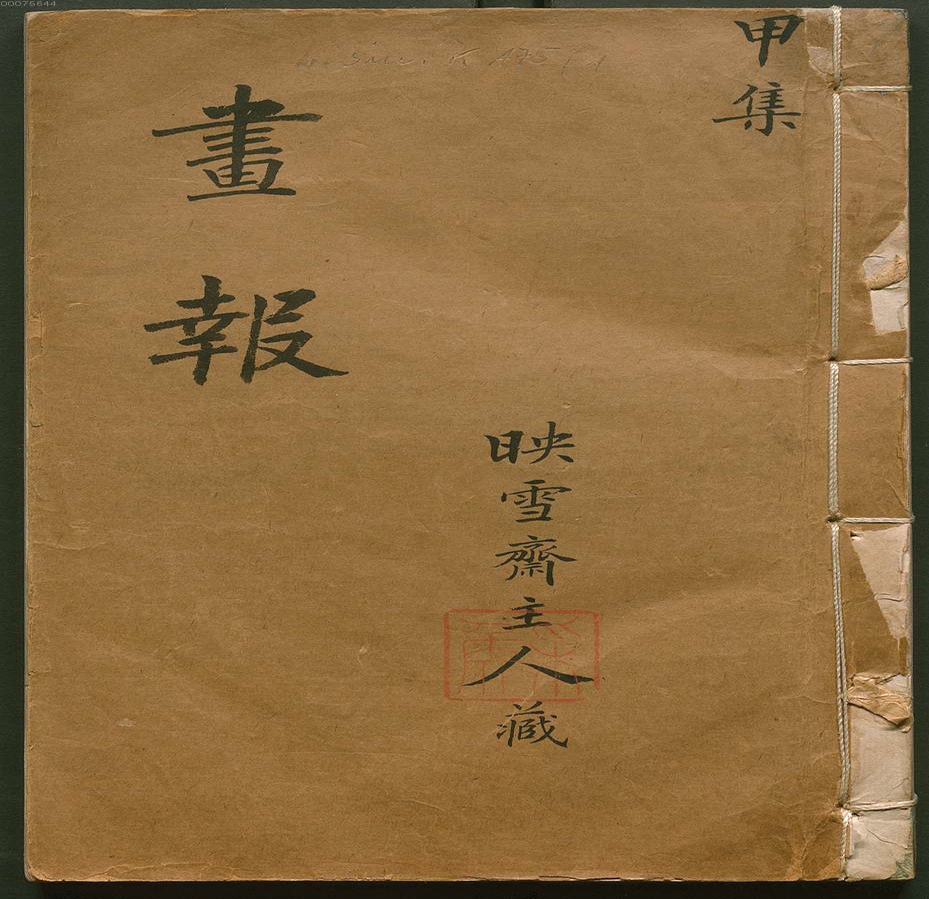 甲集
畫報
映雪齋主人藏
00075644